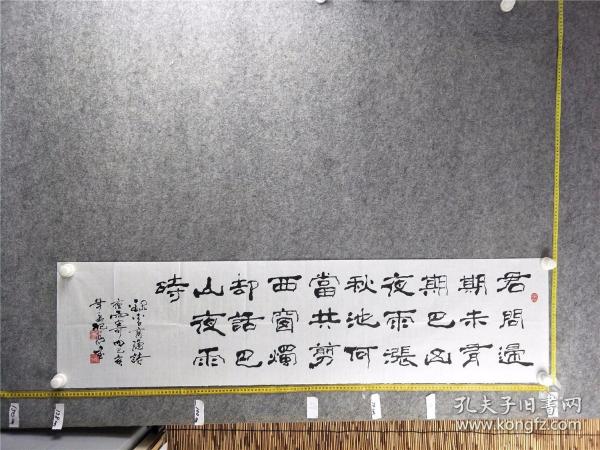 君問歸
期未有
期巴山
夜雨漲
秋池何
當共剪
西窗燭
却話巴
山夜雨
時
孔夫子旧书网
www.kongfz.com